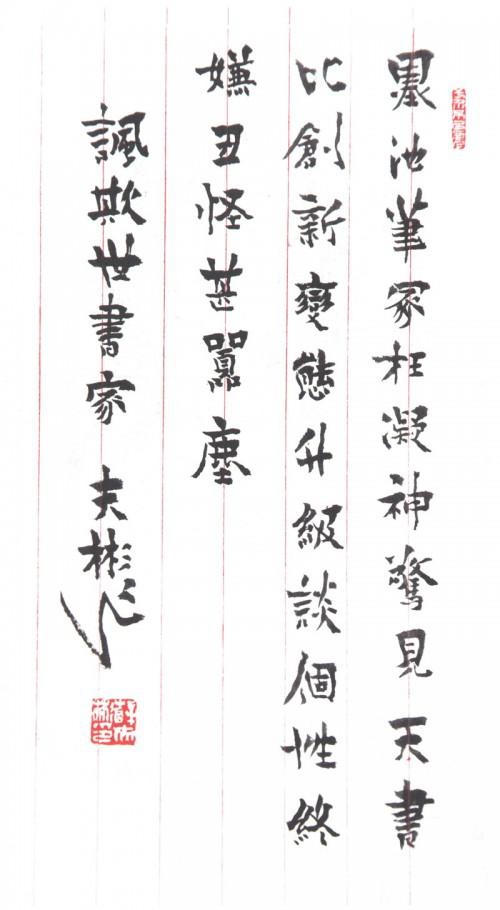 墨池筆冢枉凝神驚見天書
比創新變態升級談個性終
嫌丑怪甚囂塵
諷欺世書家 夫彬